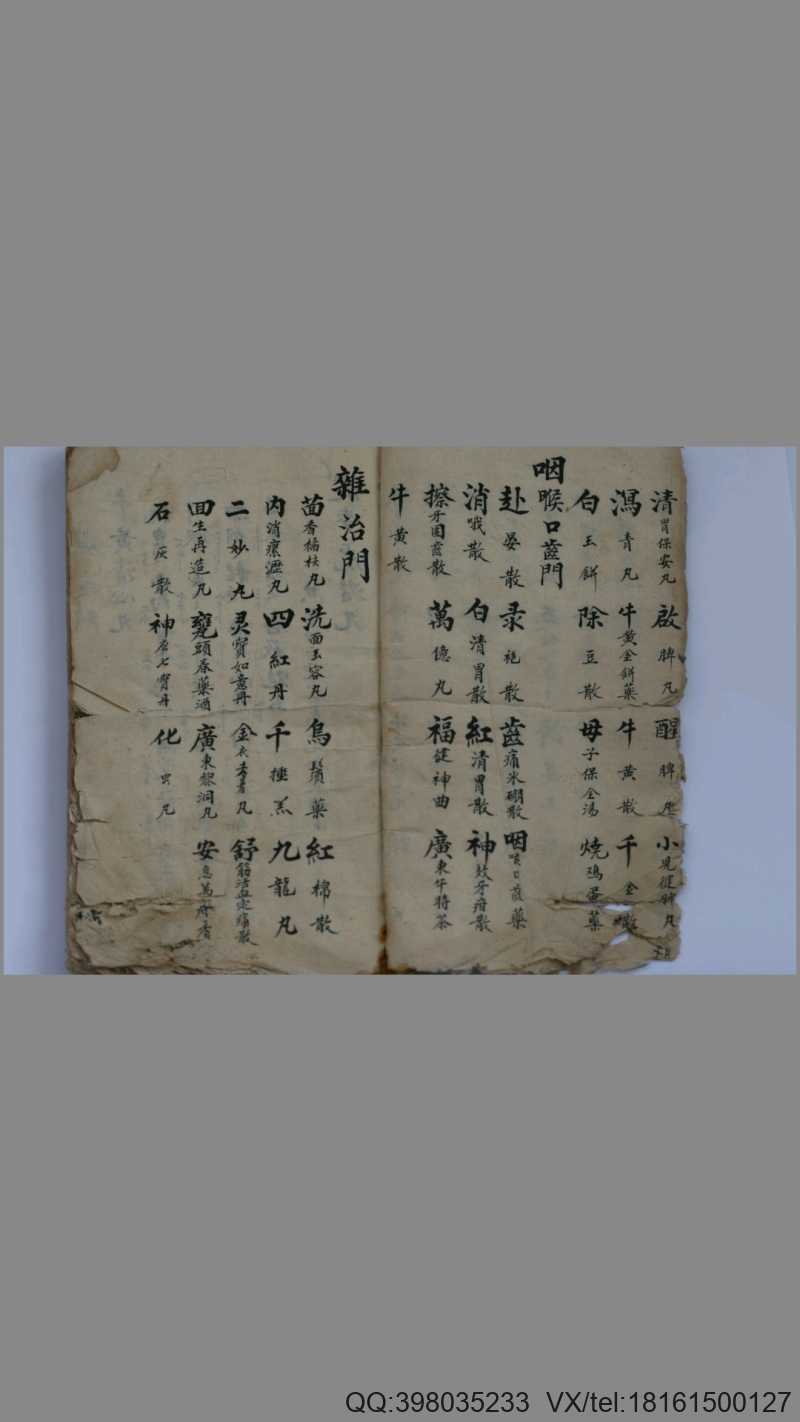 清胃保安丸 啟脾丸 醒脾丸 小児健脾丸
瀉青丸 牛黄金餅藥 牛黄散 千金散
白玉餅 除豆散 母子保全湯 燒鴻蛋藥
咽喉口齒門
赴晏散 录袍散 齒痛氷硼散 咽喉口疳藥
消哦散 白清胃散 紅清胃散 神效牙疳散
擦牙固齒散 萬億丸 福建神曲 廣東午時茶
牛黄散
雜治門
茴香橘核丸 洗面玉容丸 烏鬚藥 紅棉散
内消瘰瀝丸 四紅丹 千捶羔 九龍丸
二妙丸 灵寳如意丹 金衣丸 舒筋活血定痛散
回生再造丸 甕頭春藥酒 廣東黎洞丸 安息萬府香
石灰散 神应七寳丹 化虫丸
QQ:398035233 VX/tel:18161500127